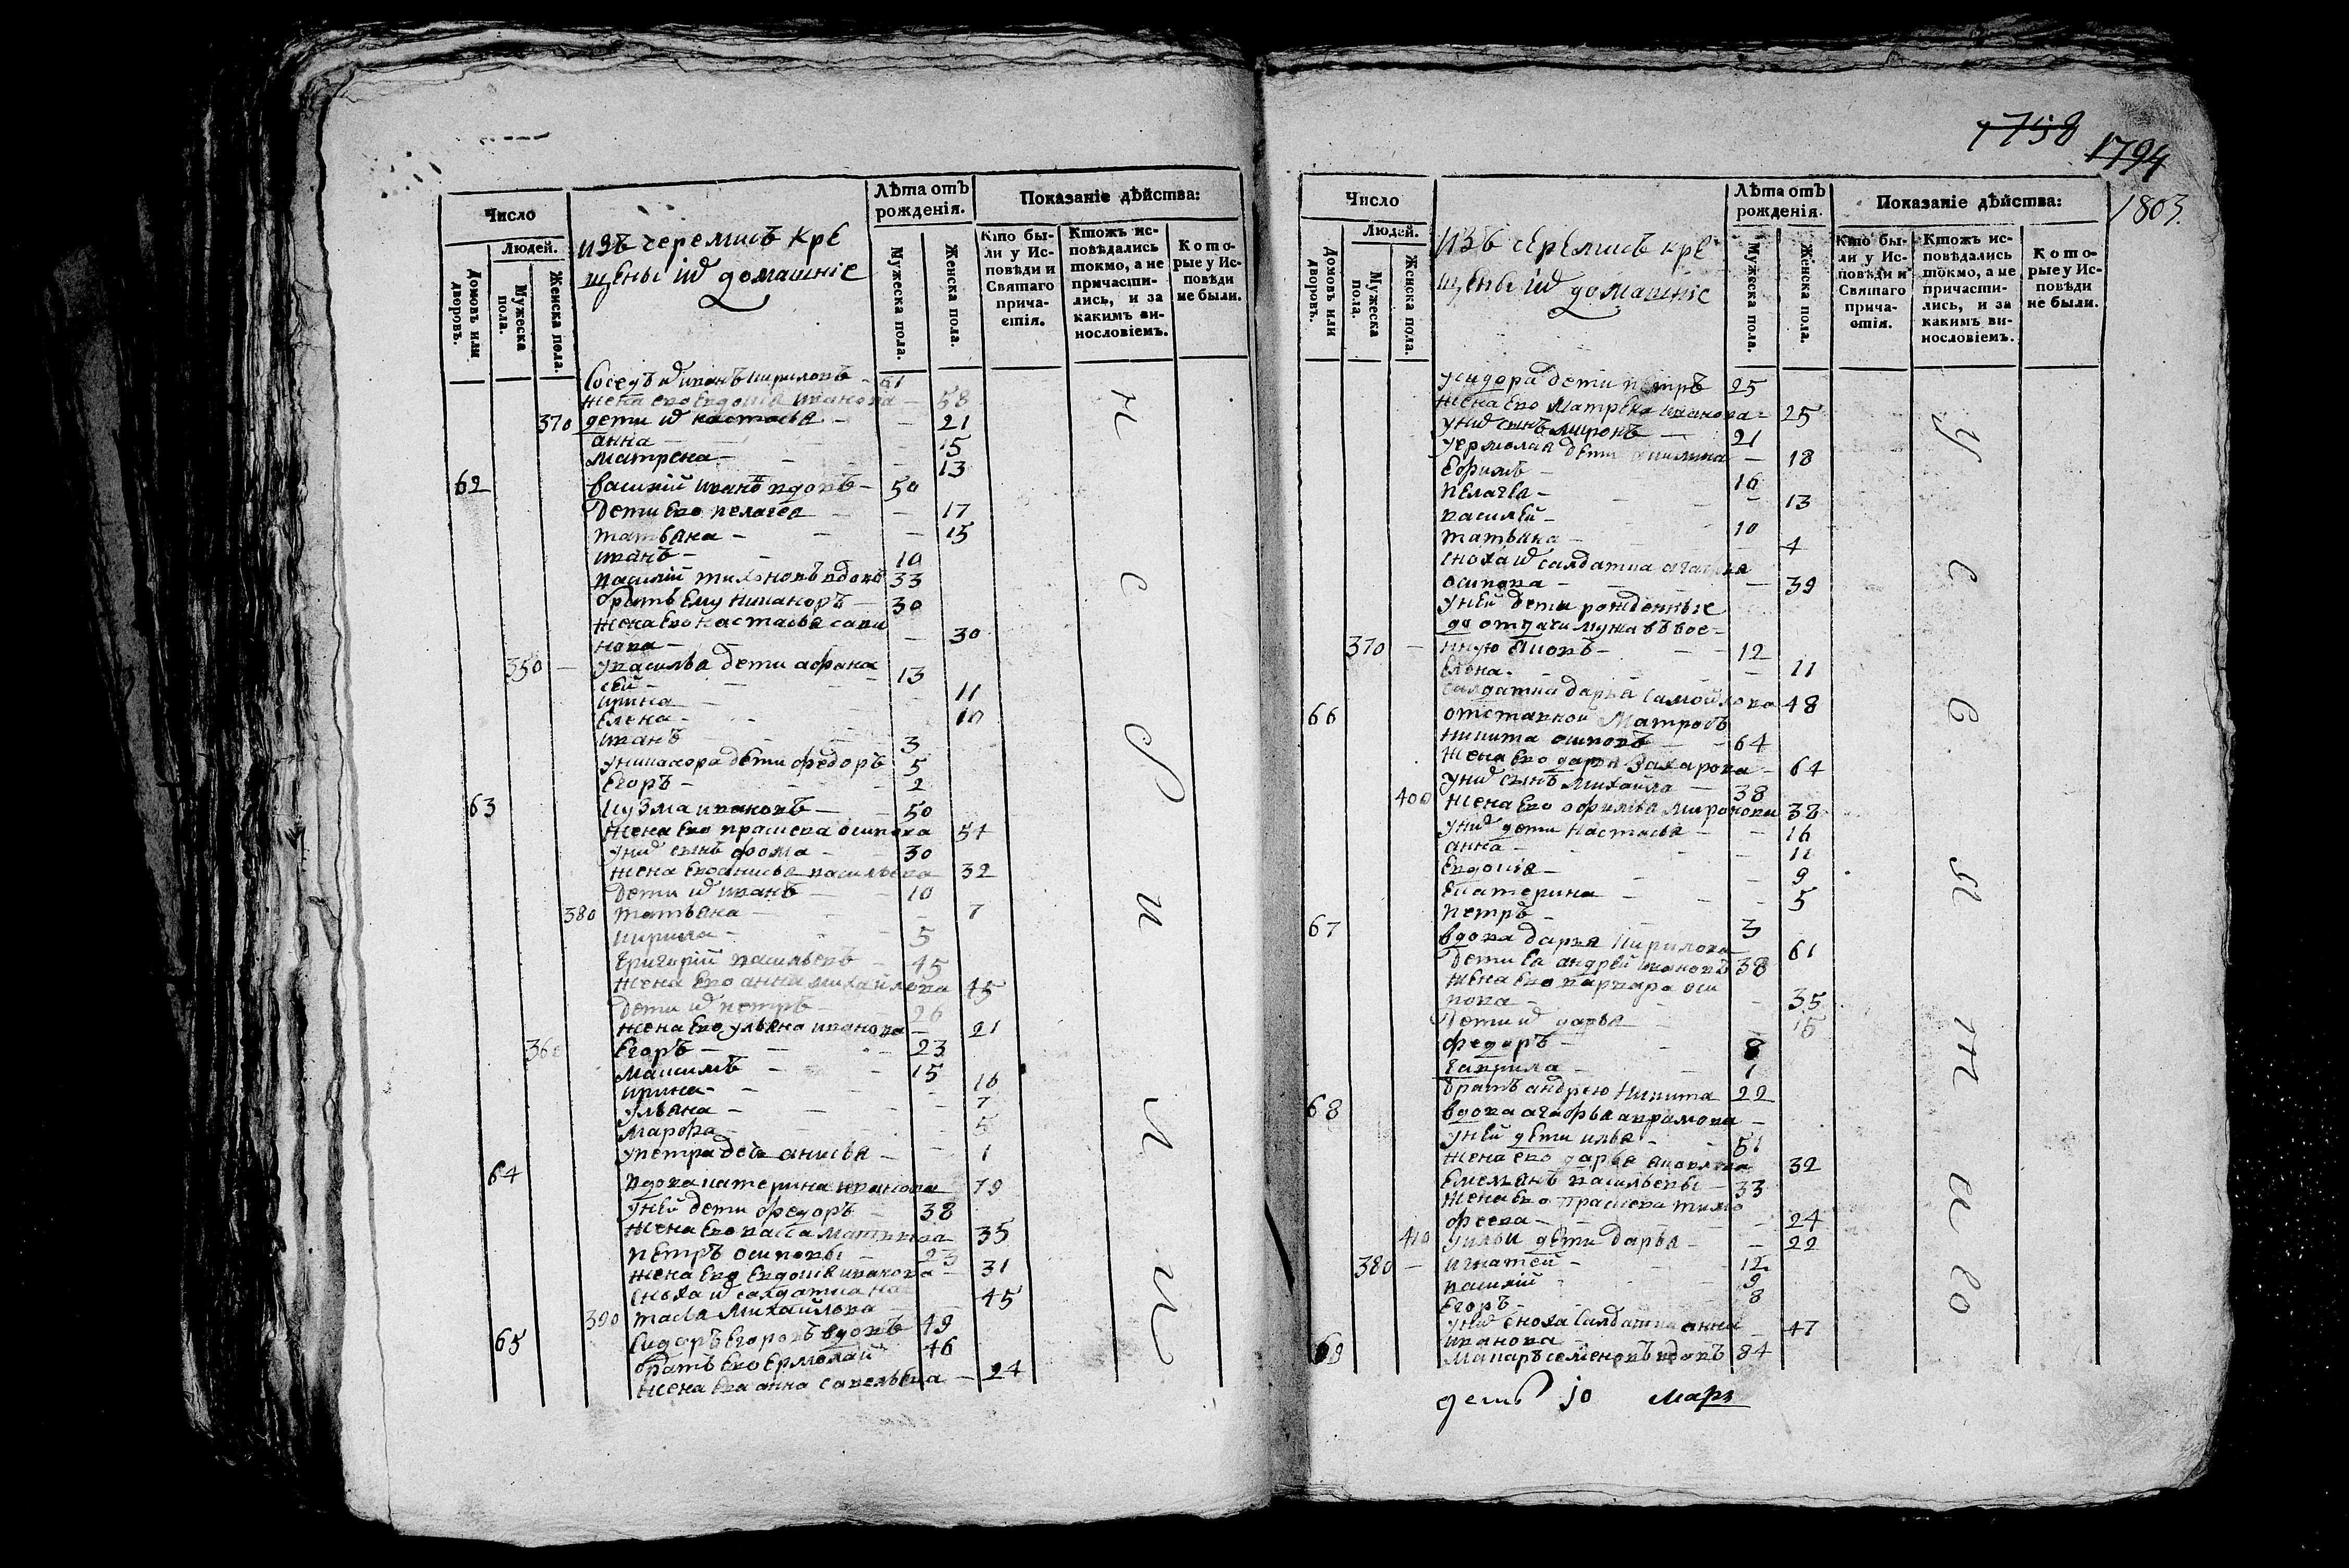 1758
1794
1803
Число
Людей.
Домовъ или дворовъ.
Мужеска пола.
Женска пола.
изъ черемисъ кре
щены ид домашніе
Лѣта отъ рожденія.
Мужеска пола.
Женска пола.
Показаніе дѣйства:
Кто бы-
ли у Ис-
повѣди и
Святаго
прича-
стія.
Ктожъ ис-
повѣдались
токмо, а не
причасти-
лись, и за
какимъ ви-
нословіемъ.
Кото-
рые у Ис-
повѣди
не были.
Соседъ ид иванъ кириловъ - 61
жена ево евдокія иванова - 58
370 дети ид настасья - 21
анна - 15
матрена - 13
62 василій ивановъ вдовъ - 50
дети ево пелагея - 17
татьяна - 15
иванъ - 10
василій тихоновъ вдовъ 33
братъ ему никаноръ - 30
жена ево настасья сави
нова - 30
350 - увасилья дети афана
сей - 13
ирина - 11
елена - 10
иванъ - 3
униканора дети федоръ 5
егоръ - 2
63 кузма ивановъ - 50
жена ево прасковя осипова 54
унид сынъ фома - 30
жена ево анисья васильева 32
дети ид иванъ - 10
380 татьяна - 7
кирила - 5
григорій васильевъ - 45
жена ево анна михайлова 45
дети ид петръ - 26
жена ево ульяна иванова - 21
360 егоръ - 23
максимъ - 15
ирина - 10
ульяна - 7
марфа - 5
упетра дочь анисья - 1
64 вдова катерина иванова 79
уней дети федоръ - 38
жена ево васса 35
петръ осиповы - 23
жена ево евдокія иванова - 31
сноха ид салдатка на
390 тасья михайлова - 45
65 сидоръ егоровъ вдовъ 49
братъ ево ермолай 46
жена ево анна савельева - 24
н с о и л и
Число
Людей.
Домовъ или дворовъ.
Мужеска пола.
Женска пола.
изъ черемисъ кре
щены ид домашніе
Лѣта отъ рожденія.
Мужеска пола.
Женска пола.
Показаніе дѣйства:
Кто бы-
ли у Ис-
повѣди и
Святаго
прича-
стія.
Ктожъ ис-
повѣдались
токмо, а не
причасти-
лись, и за
какимъ ви-
нословіемъ.
Кото-
рые у Ис-
повѣди
не были.
усидора дети петръ 25
жена ево матрена иванова - 25
унид сынъ миронъ - 21
уермолая дети - 18
ефимъ - 16
пелагея - 13
василей - 10
татьяна - 4
сноха ид салдатка агафья
осипова - 39
уней дети рожденные
до отдачи мужа въ вое-
370 - нную яковъ - 12
елена - 11
салдатка дарья самойлова 48
66 отставной матросъ
никита осиповъ - 64
жена ево дарья захарова - 64
унид сынъ михайла - 38
400 жена ево офимья миронова 38
унид дети настасья - 16
анна - 11
евдокія - 9
екатерина - 5
петръ - 3
67 вдова дарья кирилова - 61
дети ея андрей ивановъ 38
жена ево варвара оси
пова - 35
дети ид дарья - 15
федоръ - 8
гаврила - 1
братъ андрею никита 22
68 вдова агафья аврамова -
уней дети илья - 51
жена ево дарья яковлева 32
емельянъ васильевы - 33
жена ево прасковя тимо
феева - 24
410 уильи дети дарья - 22
380 - игнатей - 12
василій - 9
егоръ - 8
унид сноха салдатка анна
иванова - 47
69 макаръ семеновъ вдовъ 84
у с в я т а го
десь jo маръ